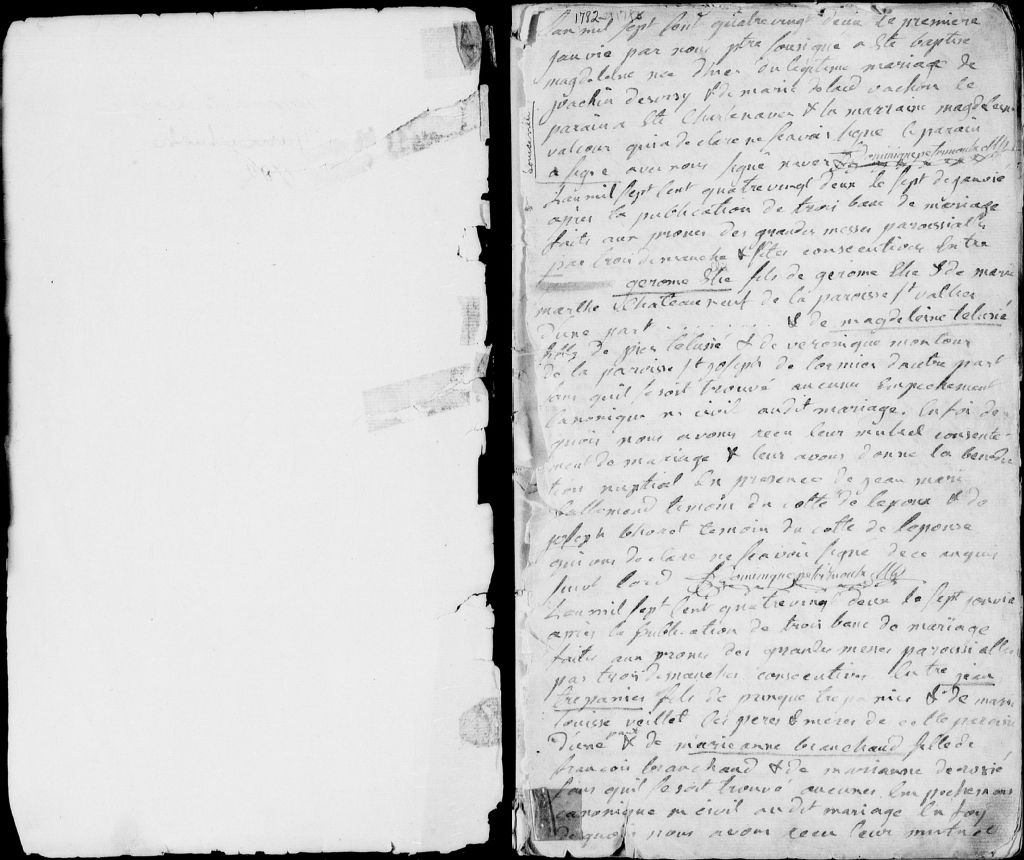 1782
L'an mil sept cent quatrevingt deux le premiere
janvie par nous ptre sousigné a été baptise
magdeleine nee d'hier du legitime mariage de
joachin desery & de marie vachon le
parain a été & la marraine magdeleine
valcour qui a declare ne scavoir signé le parain
a signe avec nous signé dominique petrimoulx
L'an mil sept cent quatrevingt deux le sept de janvie
apres la publication de trois banc de mariage
faite aux prones des grandes messes paroissialles
par trois dimanche & fêtes consecutives Entre
gerome Elie fils de gerome Elie & de marie
marthe Chateauneuf de la paroisse st vallier
d'une part & de magdeleine
fille de & de veronique montour
de la paroisse st joseph de d'autre part
sans quil se soit trouvé aucune Empechement
Canonique ni civil audit mariage. En foi de
quois nous avons recu leur mutuel consente-
ment de mariage & leur avons donne la benedic
tion nuptial En presence de jean mari
Lallemand temoin du cotte de lepoux & de
joseph temoin du cotte de leponse
qui ont declare ne scavoir signe de ce anquis
suivt lord dominique petrimoulx
L'an mil sept cent quatrevingt deux le sept janvie
apres la publication de trois banc de mariage
faite aux prones des grandes messes paroissialles
par trois dimanches consecutives Entre jean
trepanier fils de trepanier & de marie
Louisse veillet les peres & meres de cette paroisse
d'une part & de marieanne branchaud fille de
francois branchaud & de marianne
sans quil se soit trouvé aucunes Empechemens
canonique ni civil audit mariage En foy
de quoi nous avons recu leur mutuel